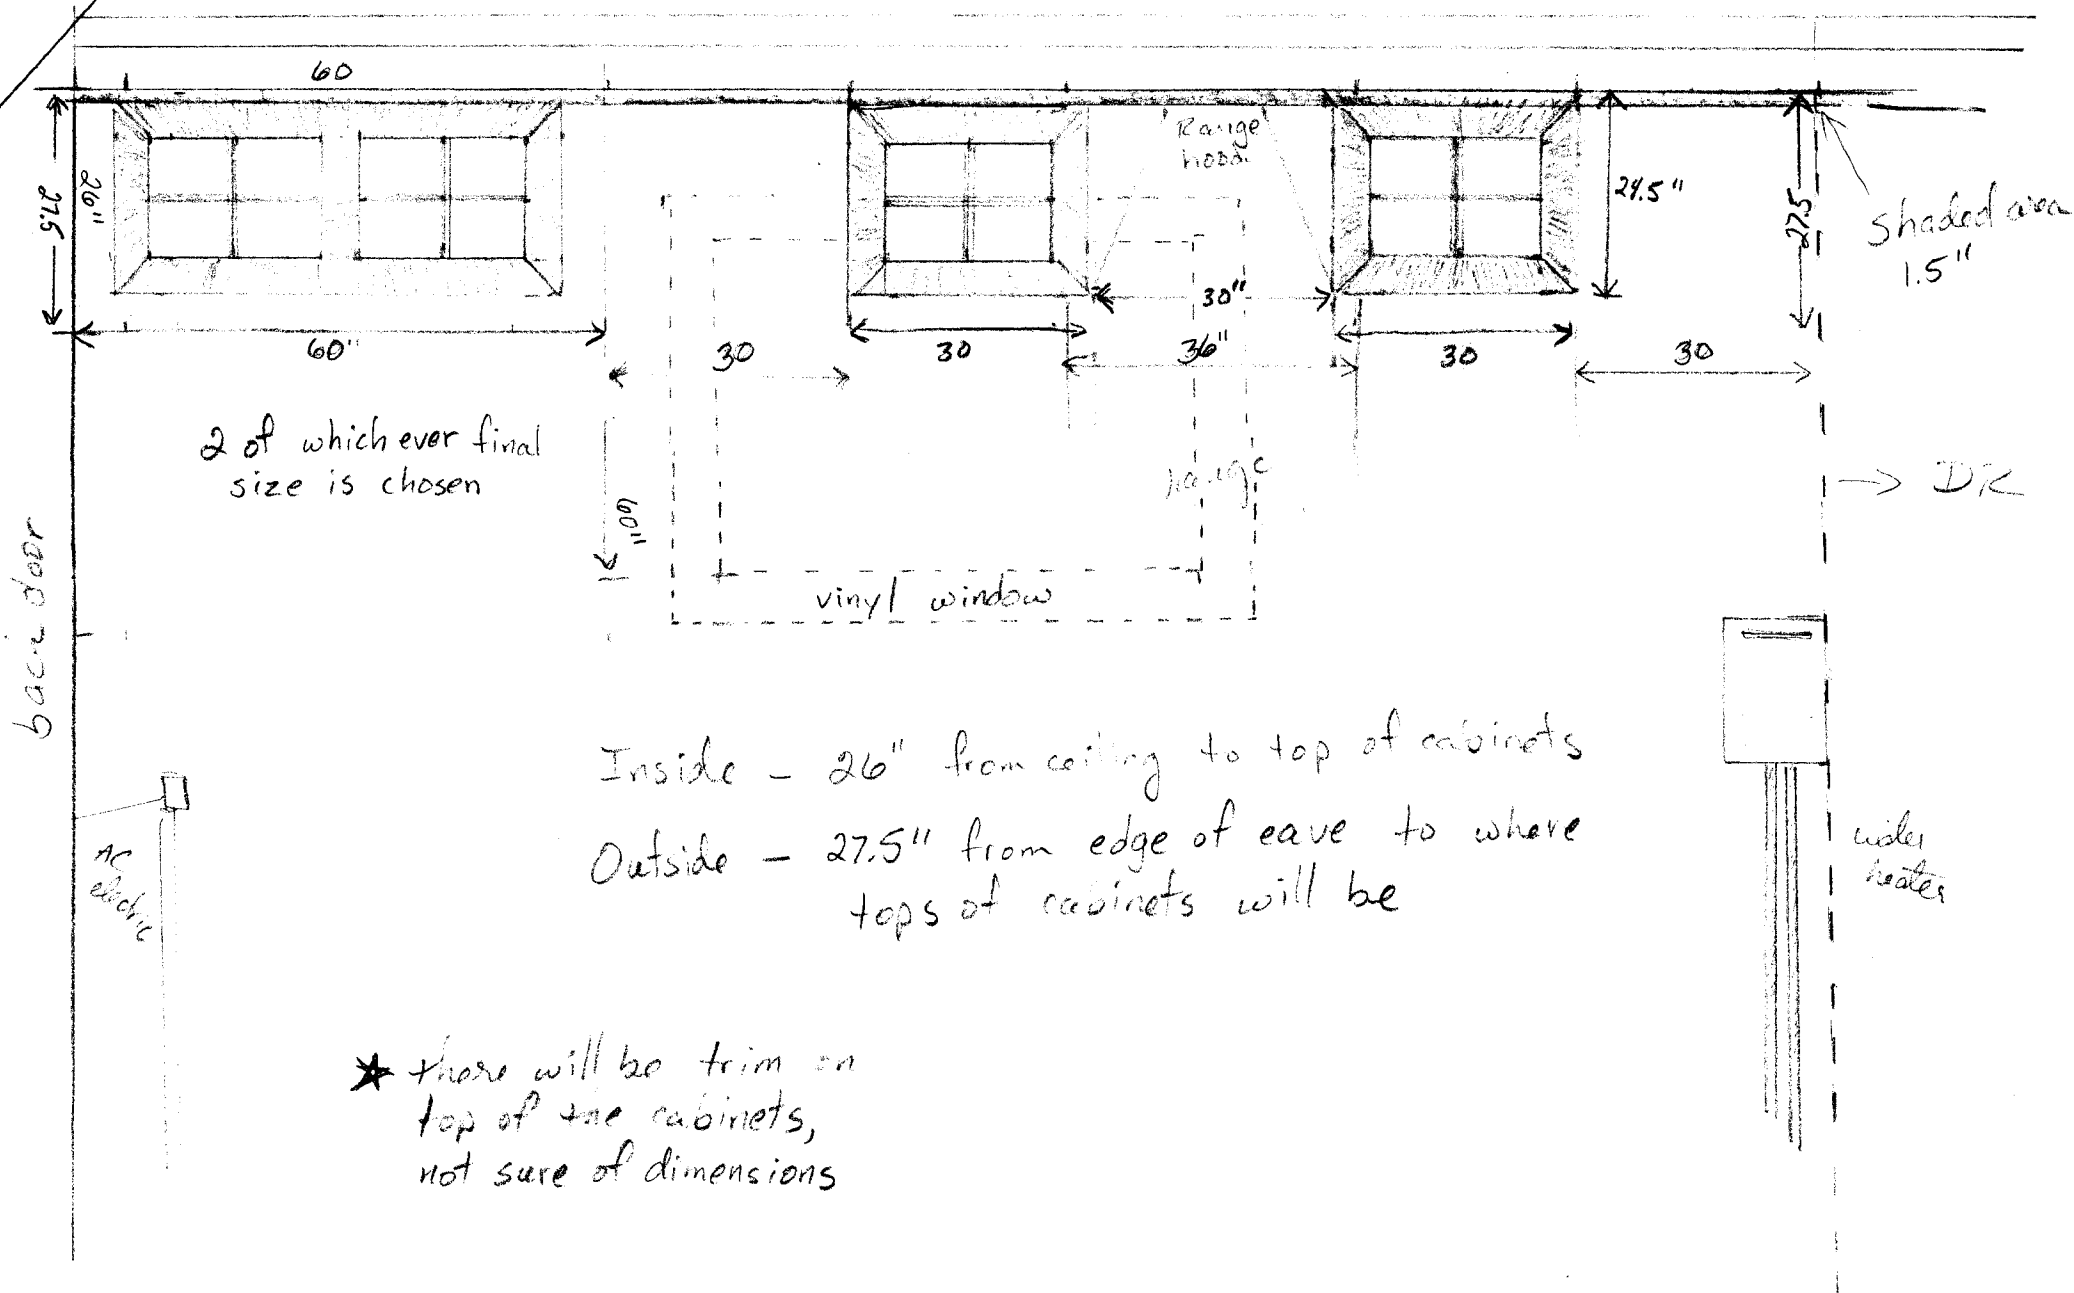 60
Range
hood
27.5
26"
24.5"
27.5
shaded area
1.5"
30"
60"
30
30
36"
30
30
2 of which ever final
size is chosen
60"
range
→ DR
vinyl window
back door
Inside - 26" from ceiling to top of cabinets
Outside - 27.5" from edge of eave to where
tops of cabinets will be
AC
electric
heater
★ there will be trim on
top of the cabinets,
not sure of dimensions